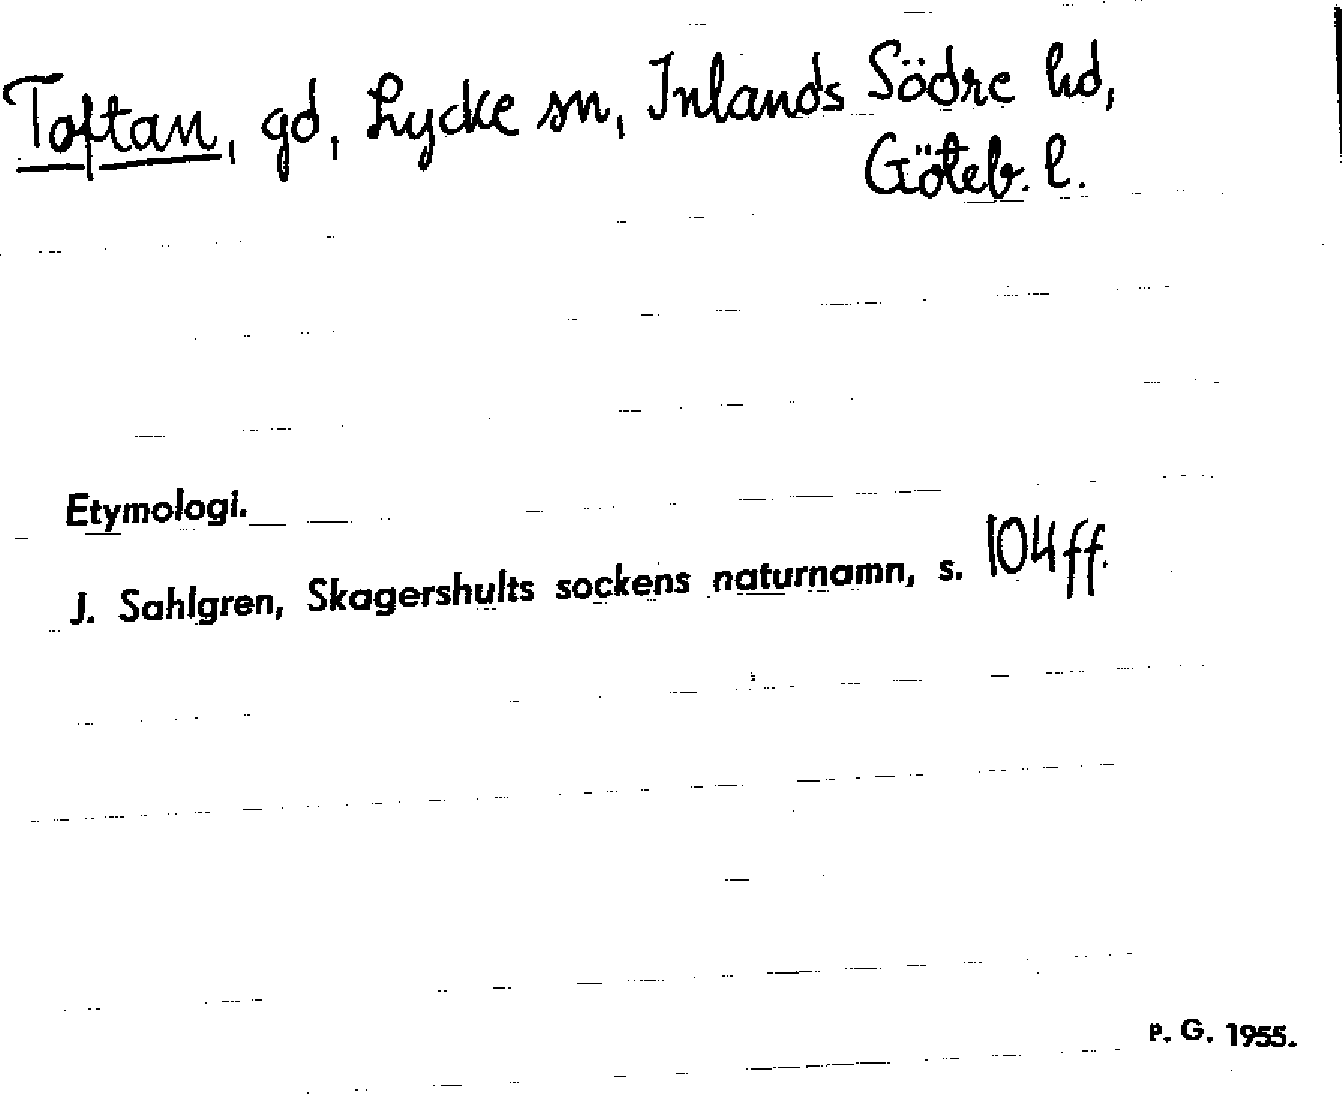 Toftan, gd, Lycke sn, Inlands Södre hd,
Göteb. l.
Etymologi.
J. Sahlgren, Skagershults sockens naturnamn, s. 104 ff.
P. G. 1955.